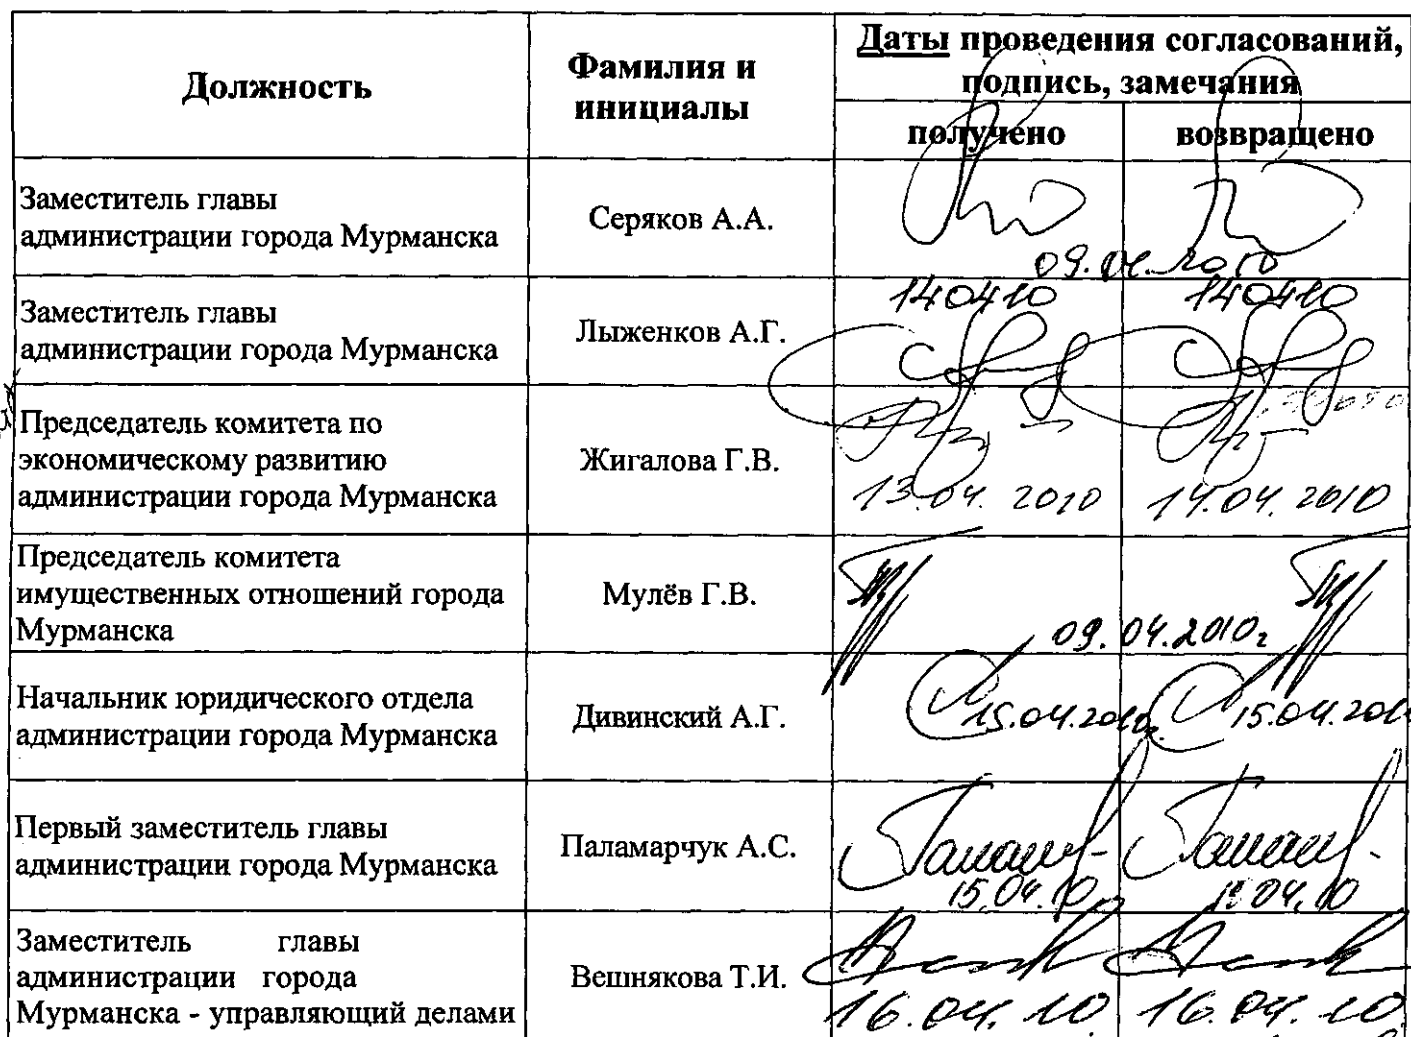 Должность
Фамилия и
инициалы
Даты проведения согласований,
подпись, замечания
получено
возвращено
Заместитель главы
администрации города Мурманска
Серяков А.А.
09.04.2010
Заместитель главы
администрации города Мурманска
Лыженков А.Г.
140410
140410
Председатель комитета по
экономическому развитию
администрации города Мурманска
Жигалова Г.В.
13.04. 2010
14.04. 2010
Председатель комитета
имущественных отношений города
Мурманска
Мулёв Г.В.
09. 04.2010г
Начальник юридического отдела
администрации города Мурманска
Дивинский А.Г.
15.04.2010г
15.04.201
Первый заместитель главы
администрации города Мурманска
Паламарчук А.С.
15.04.10
04.10
Заместитель главы
администрации города
Мурманска - управляющий делами
Вешнякова Т.И.
16.04.10
16.04.10